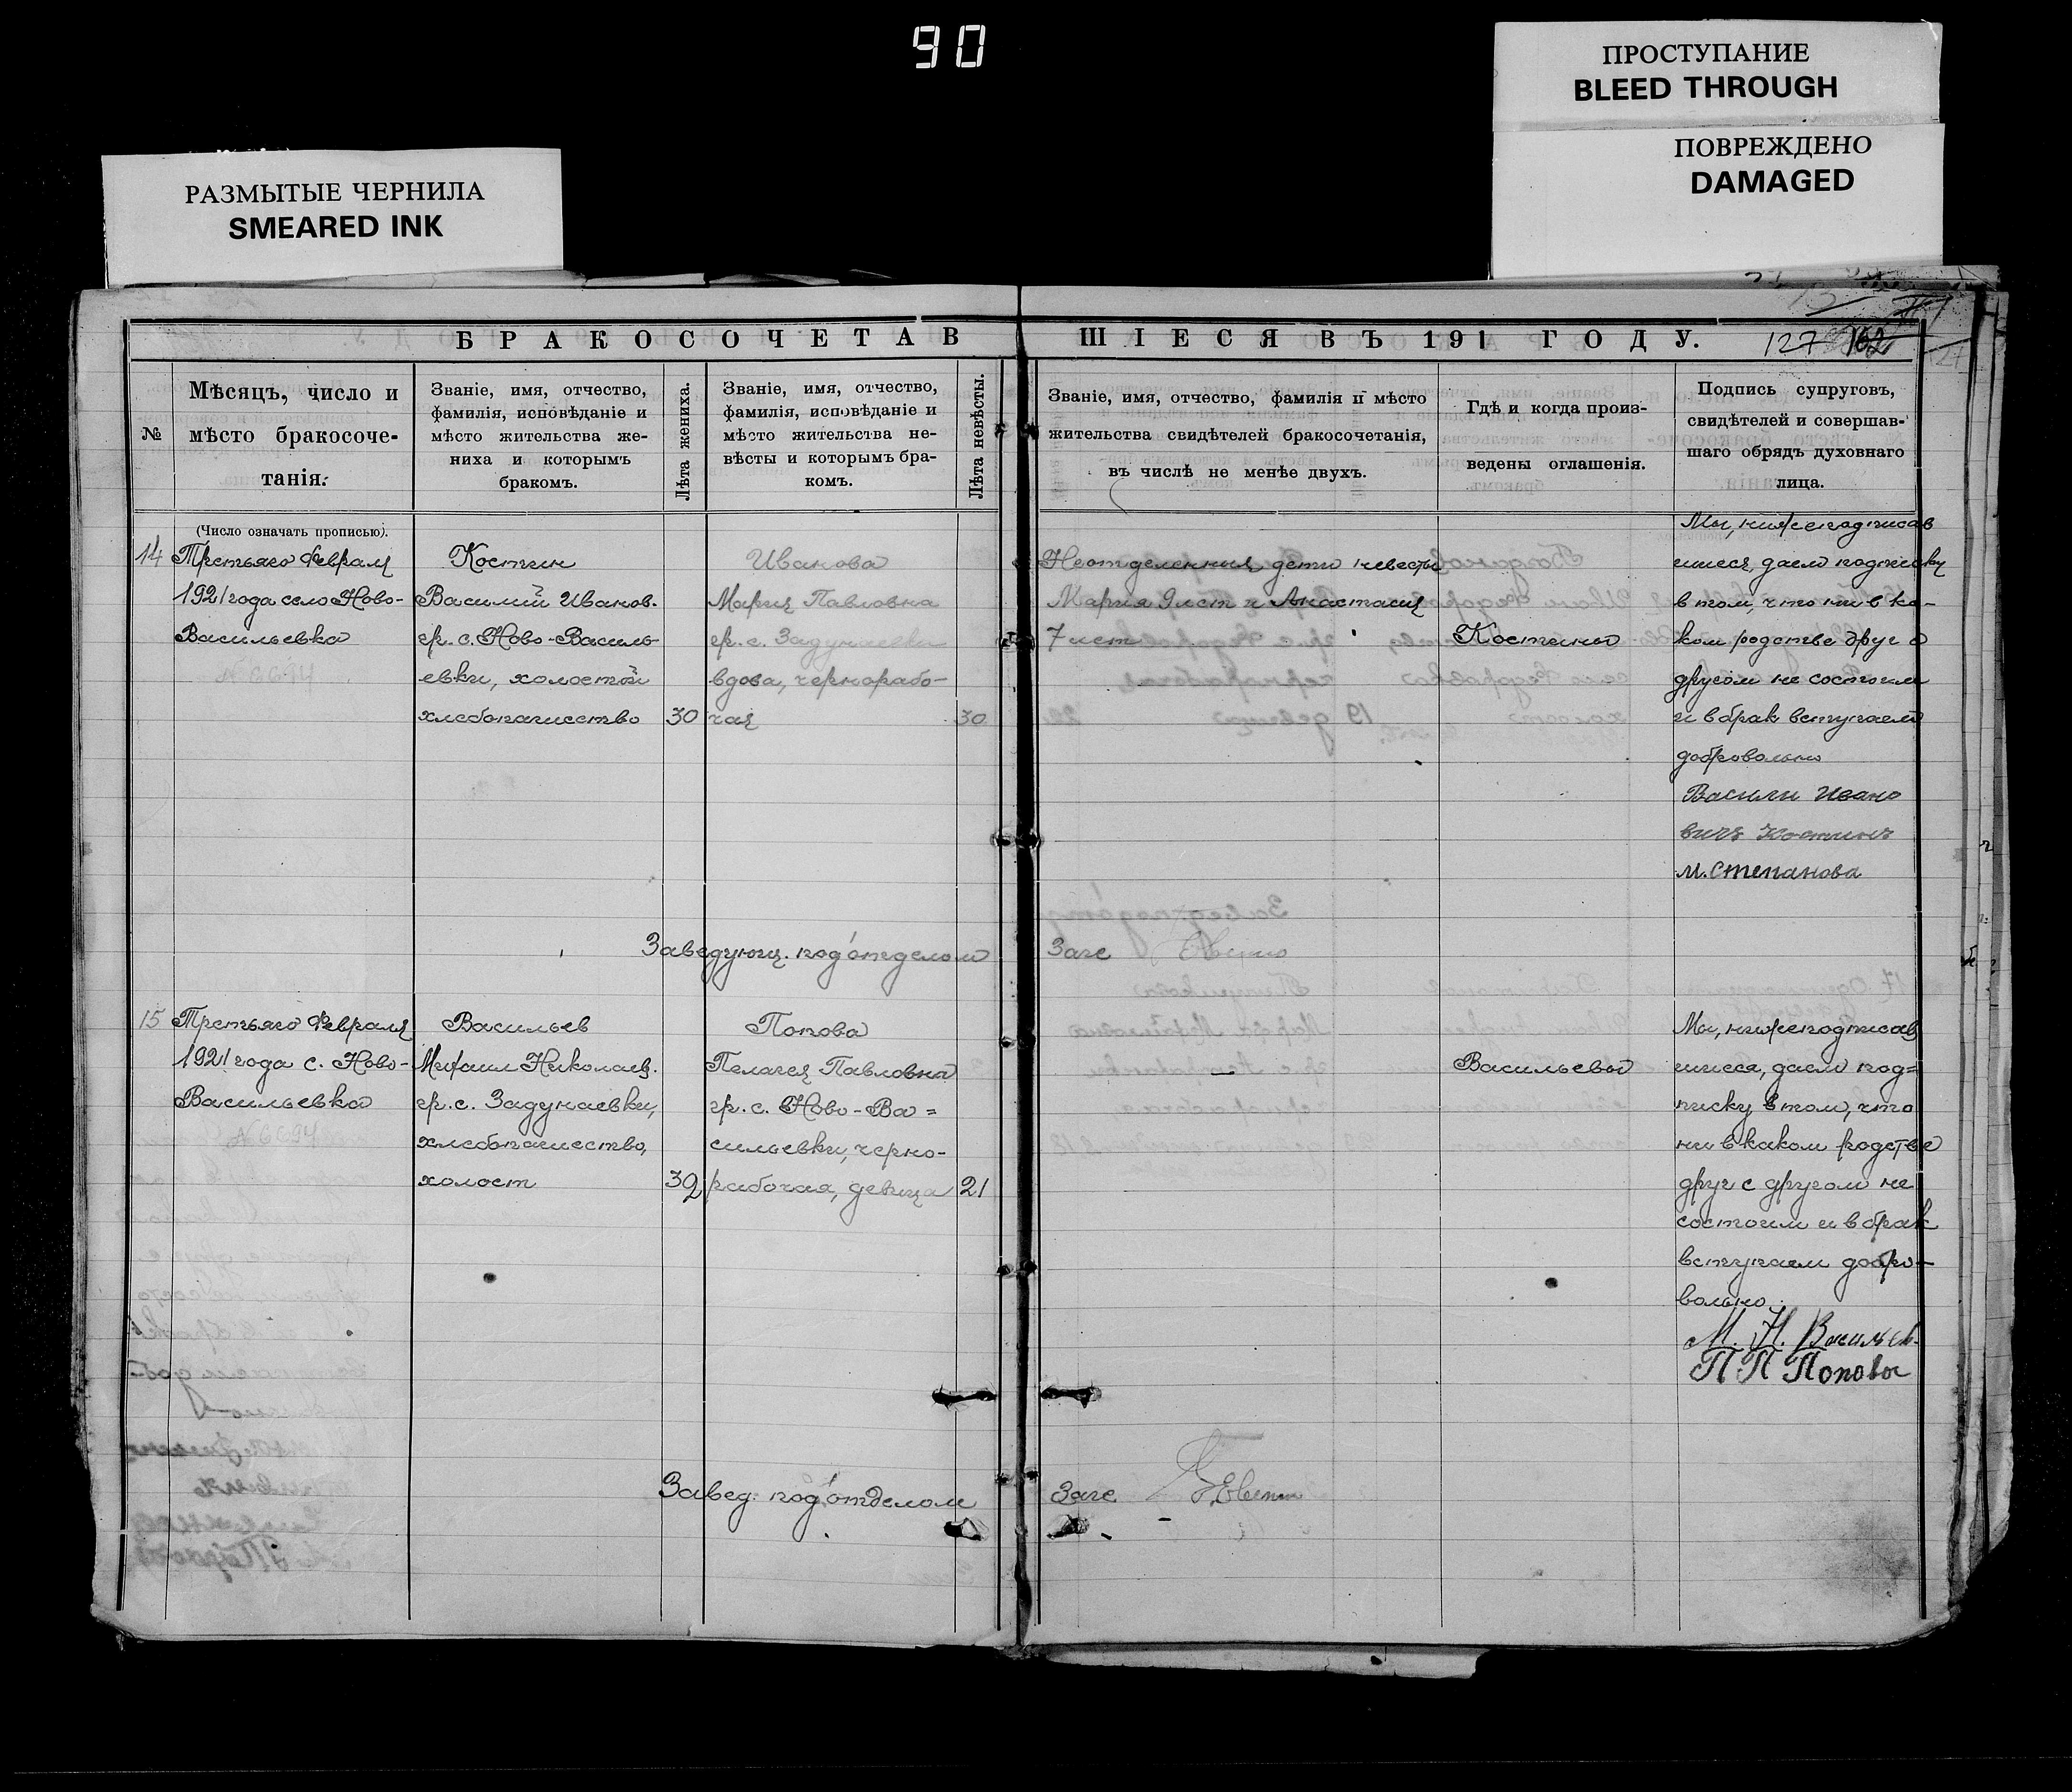 90
ПРОСТУПАНИЕ
BLEED THROUGH
ПОВРЕЖДЕНО
DAMAGED
РАЗМЫТЫЕ ЧЕРНИЛА
SMEARED INK
БРАКОСОЧЕТАВ
ШІЕСЯ ВЪ 191 ГОДУ.
127
№
Мѣсяцъ, число и
мѣсто бракосоче-
танія.
(Число означать прописью).
Званіе, имя, отчество,
фамилія, исповѣданіе и
мѣсто жительства же-
ниха и которымъ
бракомъ.
Лѣта жениха.
Званіе, имя, отчество,
фамилія, исповѣданіе и
мѣсто жительства не-
вѣсты и которымъ бра-
комъ.
Лѣта невѣсты.
Званіе, имя, отчество, фамилія и мѣсто
жительства свидѣтелей бракосочетанія,
въ числѣ не менѣе двухъ.
Гдѣ и когда произ-
ведены оглашенія.
Подпись супруговъ,
свидѣтелей и совершав-
шаго обрядъ духовнаго
лица.
14
Третьяго Февраля
1921 года село Ново-
Васильевка
№ 6694
Костин
Василий Иванов.
гр. с. Ново-Василь-
евки, холостой
хлебопашество
30
Иванова
Мария Павловна
гр. с. Задунаевки
вдова, чернорабо-
чая
30
Неотделенныя дети невесты
Мария 9 лет и Анастасия
7 лет
Костины
Мы, нижеподписав
шиеся, даем подписку
в том, что ни в ка-
ком родстве друг с
другом не состоим
и в брак вступаем
добровольно
Васили Ивано
вичъ Костинъ
М. Степанова
Заведующ. под'отделом
Загс
15
Третьяго Февраля
1921 года с. Ново-
Васильевка
№ 6694
Васильев
Михаил Николаев.
гр. с. Задунаевки,
хлебопашество,
холост
32
Попова
Пелагея Павловна
гр. с. Ново-Ва=
сильевки, черно-
рабочая, девица
21
—
Васильевы
Мы, нижеподписав
шиеся, даем под=
писку в том, что
ни в каком родстве
друг с другом не
состоим и в брак
вступаем добро-
вольно.
М. Н. Васильев
П П Попова
Завед. под'отделом
Загс